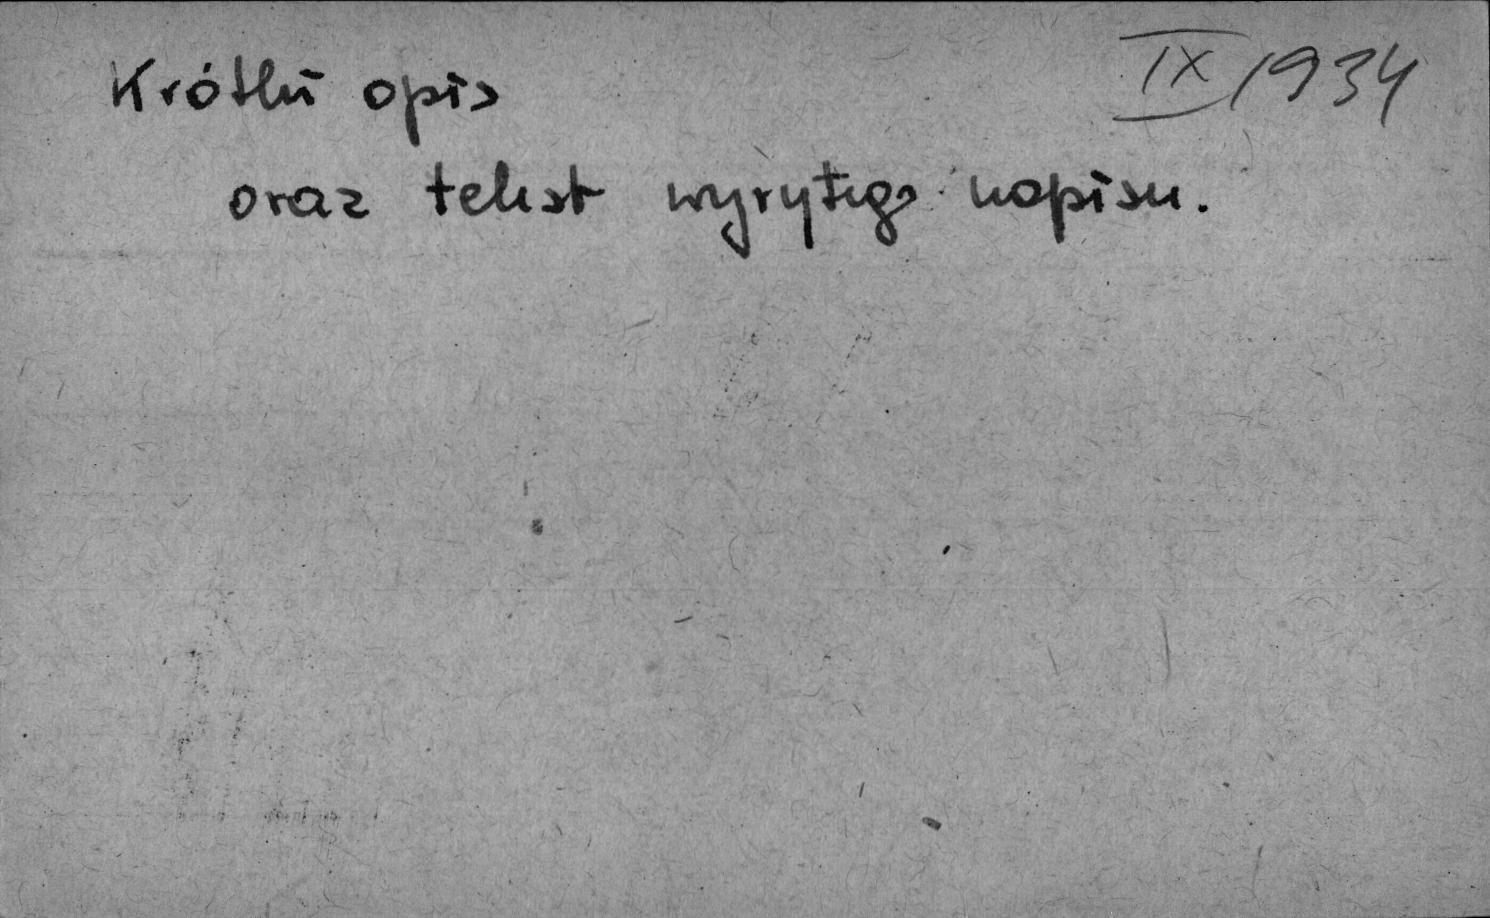 IX/1934
Krótki opis
oraz tekst wyrytego napisu.